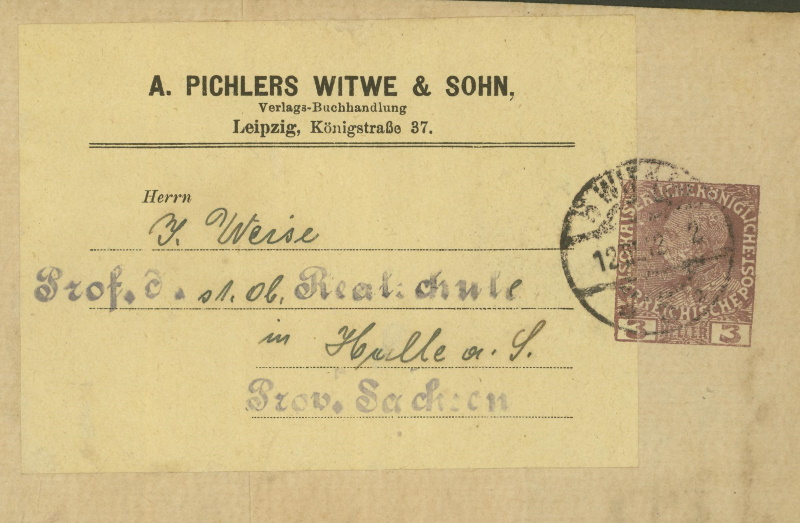 A. PICHLERS WITWE & SOHN,
Verlags-Buchhandlung
Leipzig, Königstraße 37.
Herrn
J. Weise
Prof. d. st. Ob. Realschule
in Halle a. S.
Prov. Sachsen
WIEN
12
KAISERLICHE KÖNIGLICHE
ÖSTERREICHISCHE POST
3 HELLER 3